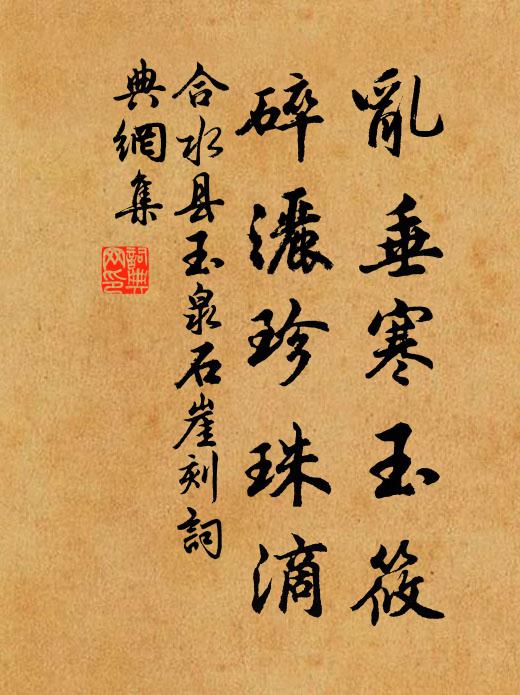 亂垂寒玉篠
碎灑珍珠滴
合水县玉泉石崖刻詞
典網集
詞典網印